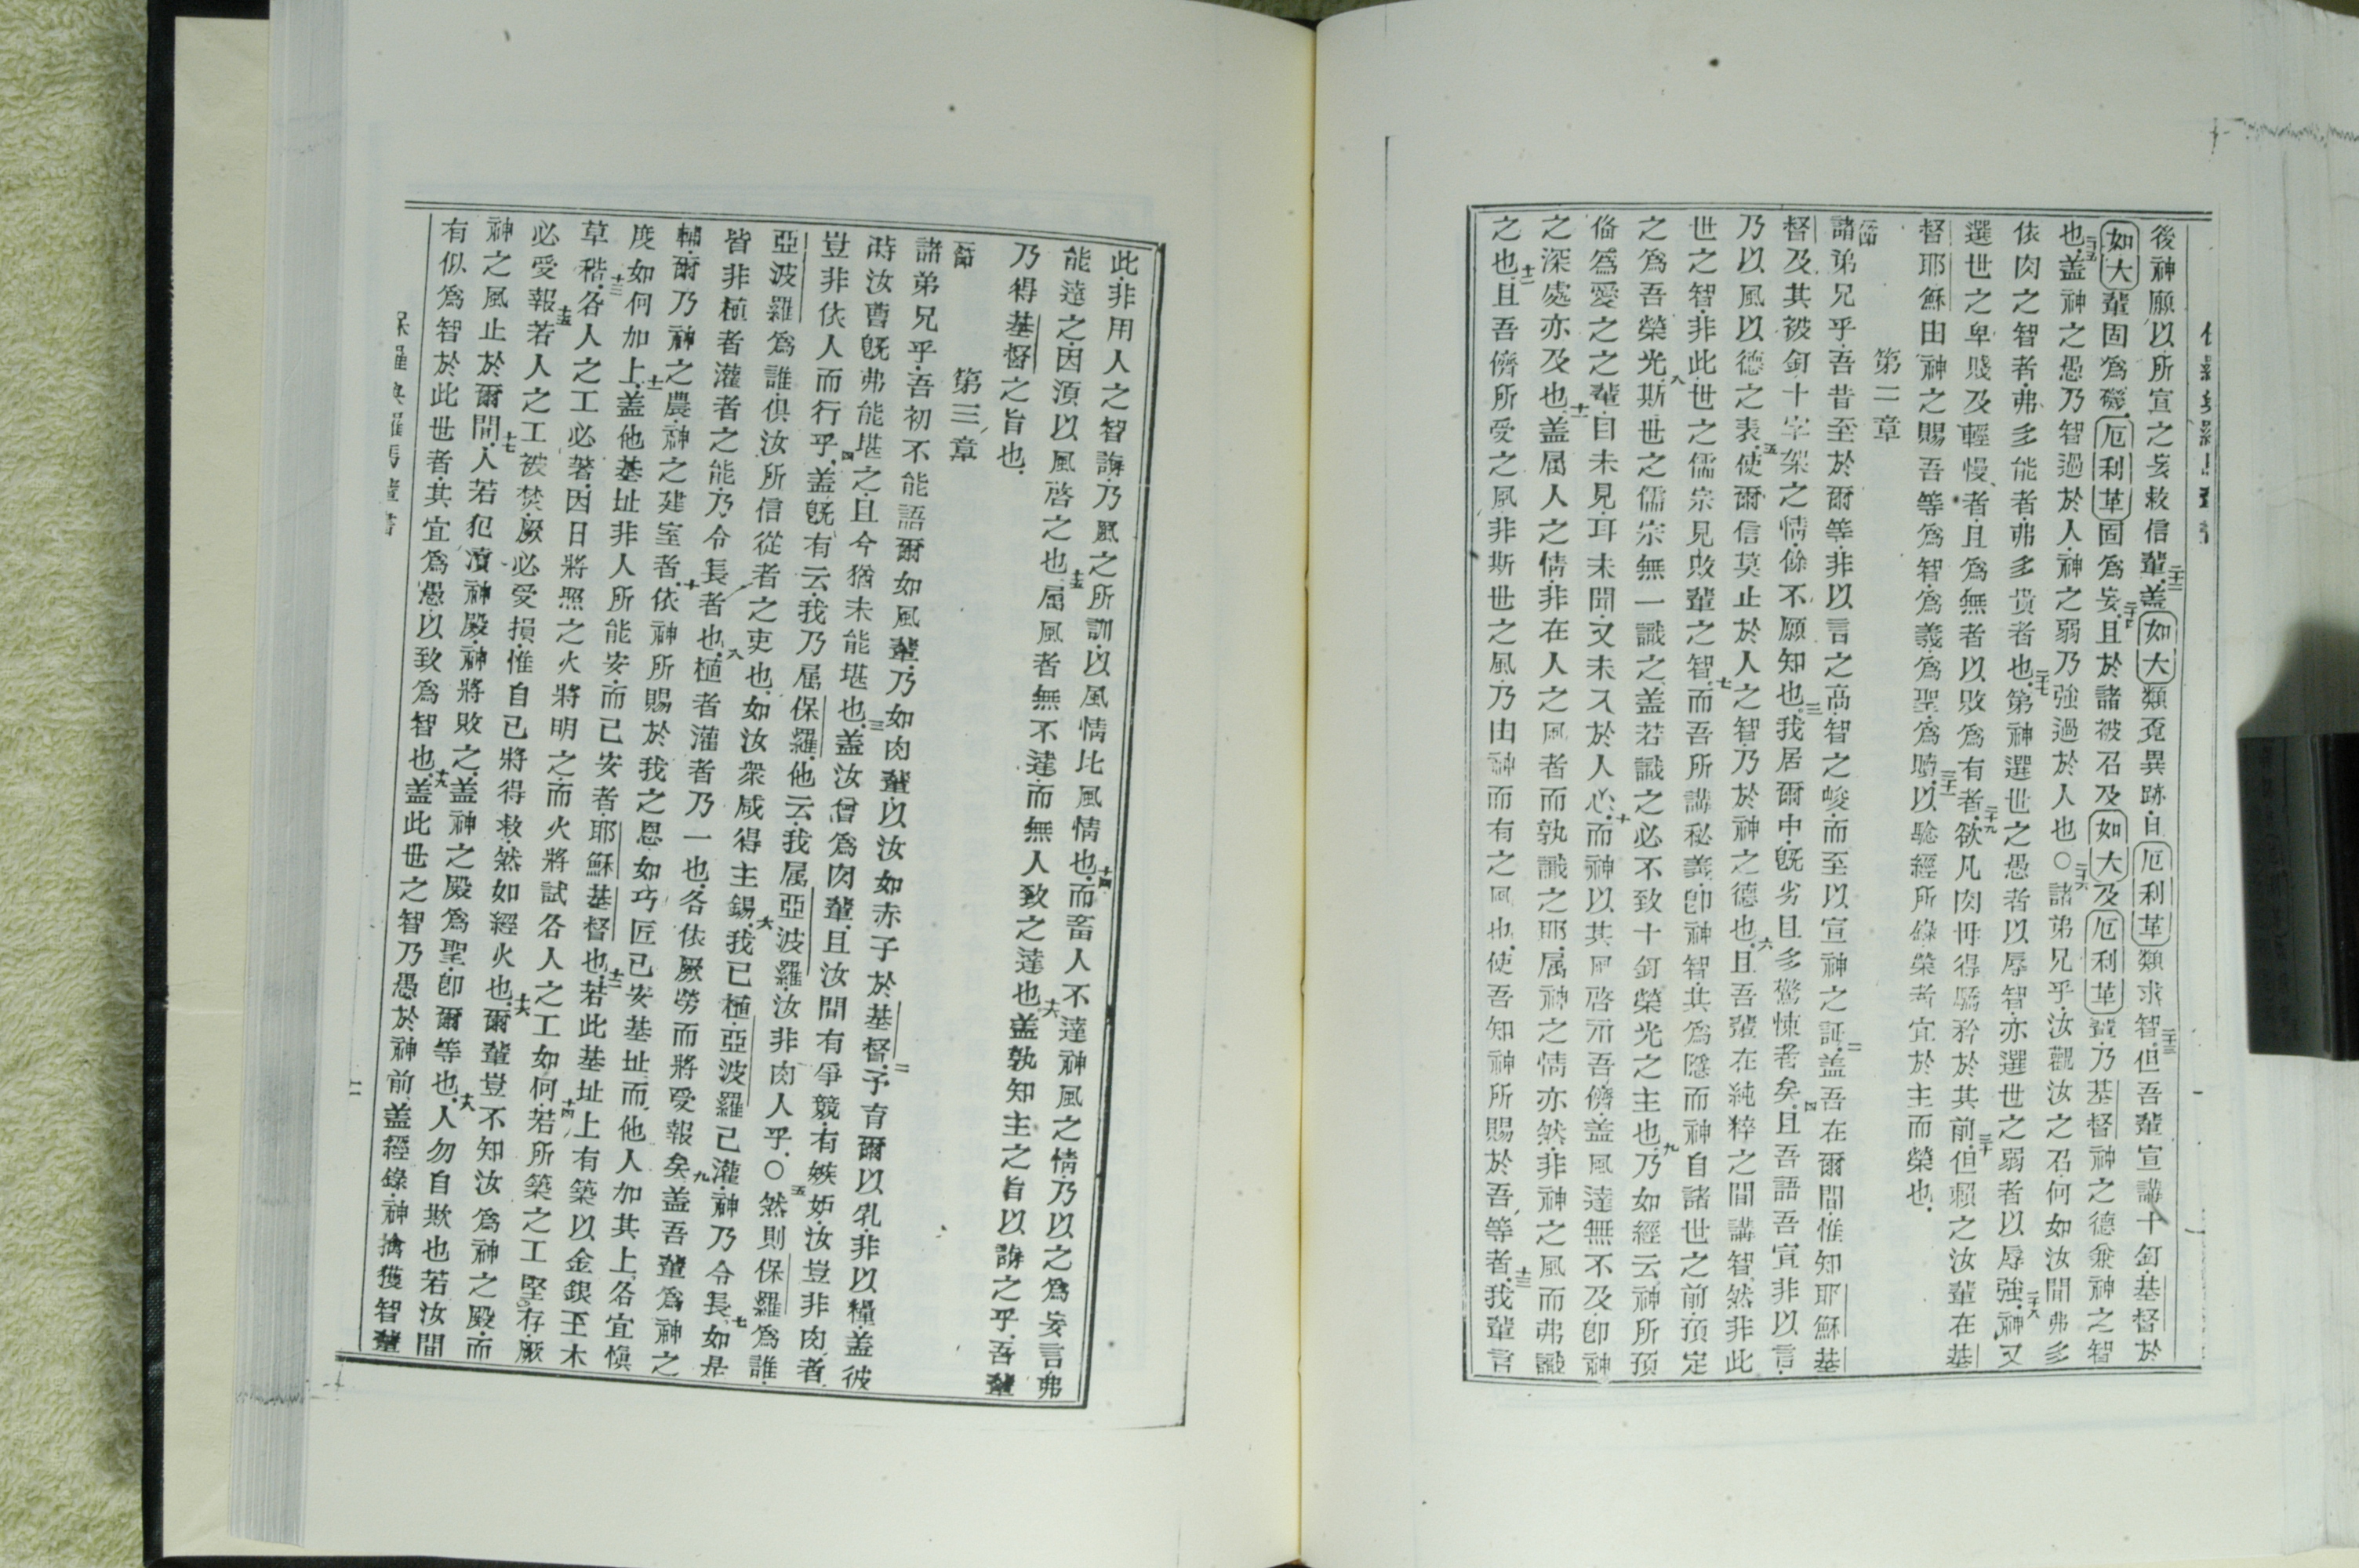 後神願以所宣之妄救信輩.二十二蓋如大類覓異跡.自厄利革類求智.二十三但吾輩宣講十釘.基督於
如大輩固爲礙.厄利革固爲妄.二十四且於諸被召及如大及厄利革輩.乃基督神之德兼神之智
也.二十五蓋神之愚乃智過於人.神之弱乃強過於人也○二十六諸弟兄乎.汝觀汝之召何如汝間弗多
依肉之智者.弗多能者.弗多貴者也.二十七第神選世之愚者以辱智.亦選世之弱者以辱強.二十八神又
選世之卑賤及輕慢者.且爲無者以敗爲有者.二十九欲凡肉毋得驕矜於其前.三十但賴之汝輩在基
督耶穌由神之賜吾等爲智.爲義.爲聖.爲贖.三十一以驗經所錄榮者宜於主而榮也.
第二章
節
諸弟兄乎.吾昔至於爾等.非以言之高.智之峻.而至以宣神之証.二蓋吾在爾間.惟知耶穌基
督及其被釘十字架之情.餘不願知也.三我居爾中.旣劣且多驚悚者矣.四且吾語吾宣非以言.
乃以風以德之表.五使爾信莫止於人之智.乃於神之德也.六且吾輩在純粹之間講智.然非此
世之智.非此世之儒宗見敗輩之智.七而吾所講秘義.卽神智.其爲隱而神自諸世之前預定
之爲吾榮光.八斯世之儒宗無一識之.蓋若識之必不致十釘榮光之主也.九乃如經云.神所預
俻爲愛之之輩.目未見.耳未聞.又未入於人心.十而神以其風啓示吾儕.蓋風達無不及.卽神
之深處亦及也.十一蓋屬人之情.非在人之風者而孰識之耶.屬神之情亦然.非神之風而弗識
之也.十二且吾儕所受之風.非斯世之風.乃由神而有之風也.使吾知神所賜於吾等者.十三我輩言
此.非用人之智誨.乃風之所訓.以風情比風情也.十四而畜人不達神風之情.乃以之爲妄言.弗
能達之.因須以風啓之也.十五屬風者無不達.而無人致之達也.十六蓋孰知主之旨以誨之乎.吾輩
乃得基督之旨也.
第三章
節
諸弟兄乎.吾初不能語爾如風輩.乃如肉輩以汝如赤子於基督.二予育爾以乳.非以糧.蓋彼
時汝曹旣弗能堪之.且今猶未能堪也.三蓋汝曾爲肉輩.且汝間有爭競.有嫉妒.汝豈非肉者.
豈非依人而行乎.四蓋旣有云.我乃屬保羅.他云.我属亞波羅.汝非肉人乎.○五然則保羅爲誰.
亞波羅爲誰.俱汝所信從者之吏也.如汝衆咸得主錫.六我已植.亞波羅己灌.神乃令長.七如是
皆非植者灌者之能.乃令長者也.八植者灌者乃一也.各依厥勞而將受報矣.九蓋吾輩爲神之
輔.爾乃神之農.神之建室者.十依神所賜於我之恩.如巧匠已安基址.而他人加其上.各宜愼
度如何加上.十一蓋他基址非人所能安.而已安者.耶穌基督也.十二若此基址上有築以金銀玉木
草稭.十三各人之工必著.因日將照之.火將明之.而火將試各人之工如何.十四若所築之工堅存.厥
必受報.十五若人之工被焚.厥必受損.惟自已將得救.然如經火也.十六爾輩豈不知汝爲神之殿.而
神之風止於爾間.十七人若犯瀆神殿.神將敗之.蓋神之殿爲聖.卽爾等也.十八人勿自欺也.若汝間
有似爲智於此世者.其宜爲愚.以致爲智也.十九蓋此世之智乃愚於神前.蓋經錄神擒獲智輩
保羅與羅馬輩書
二